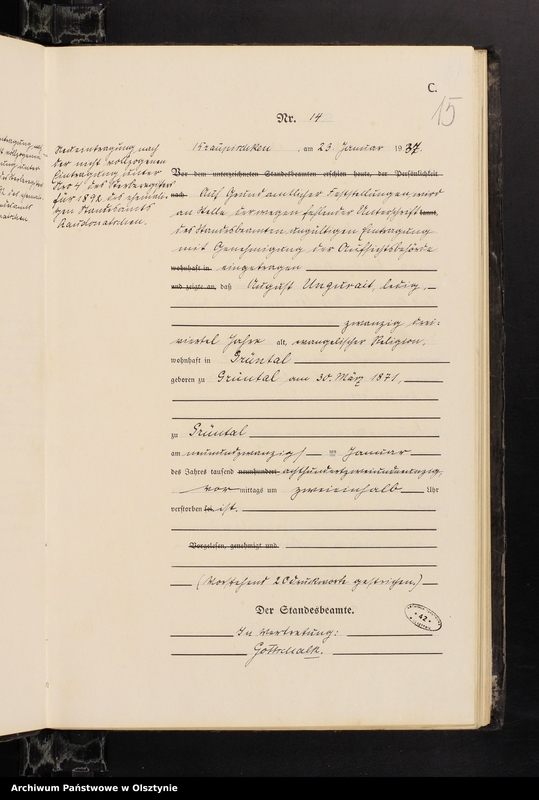 C.
15
Nr. 14
Kraupischken, am 23. Januar 1937.
Neueintragung nach
der nicht vollzogenen
Eintragung unter
Nro 4 des Sterberegisters
für 1892 des ehemali-
gen Standesamts
Raudonatschen.
Vor dem unterzeichneten Standesbeamten erschien heute, der Persönlichkeit
nach Auf Grund amtlicher Feststellungen wird
an Stelle der wegen fehlender Unterschrift kannt,
des Standesbeamten ungültigen Eintragung
mit Genehmigung der Aufsichtsbehörde
wohnhaft in eingetragen
und zeigte an, daß August Ungurait, ledig,
zwanzig drei-
viertel Jahre alt, evangelischer Religion,
wohnhaft in Grüntal
geboren zu Grüntal am 30. März 1871,
zu Grüntal
am neunundzwanzigsten Januar
des Jahres tausend neunhundert achthundertzweiundneunzig,
vor mittags um zweieinhalb Uhr
verstorben sei ist.
Vorgelesen, genehmigt und
(Vorstehend 20 Druckworte gestrichen.)
Der Standesbeamte.
In Vertretung:
Gottschalk.
42
Archiwum Państwowe w Olsztynie